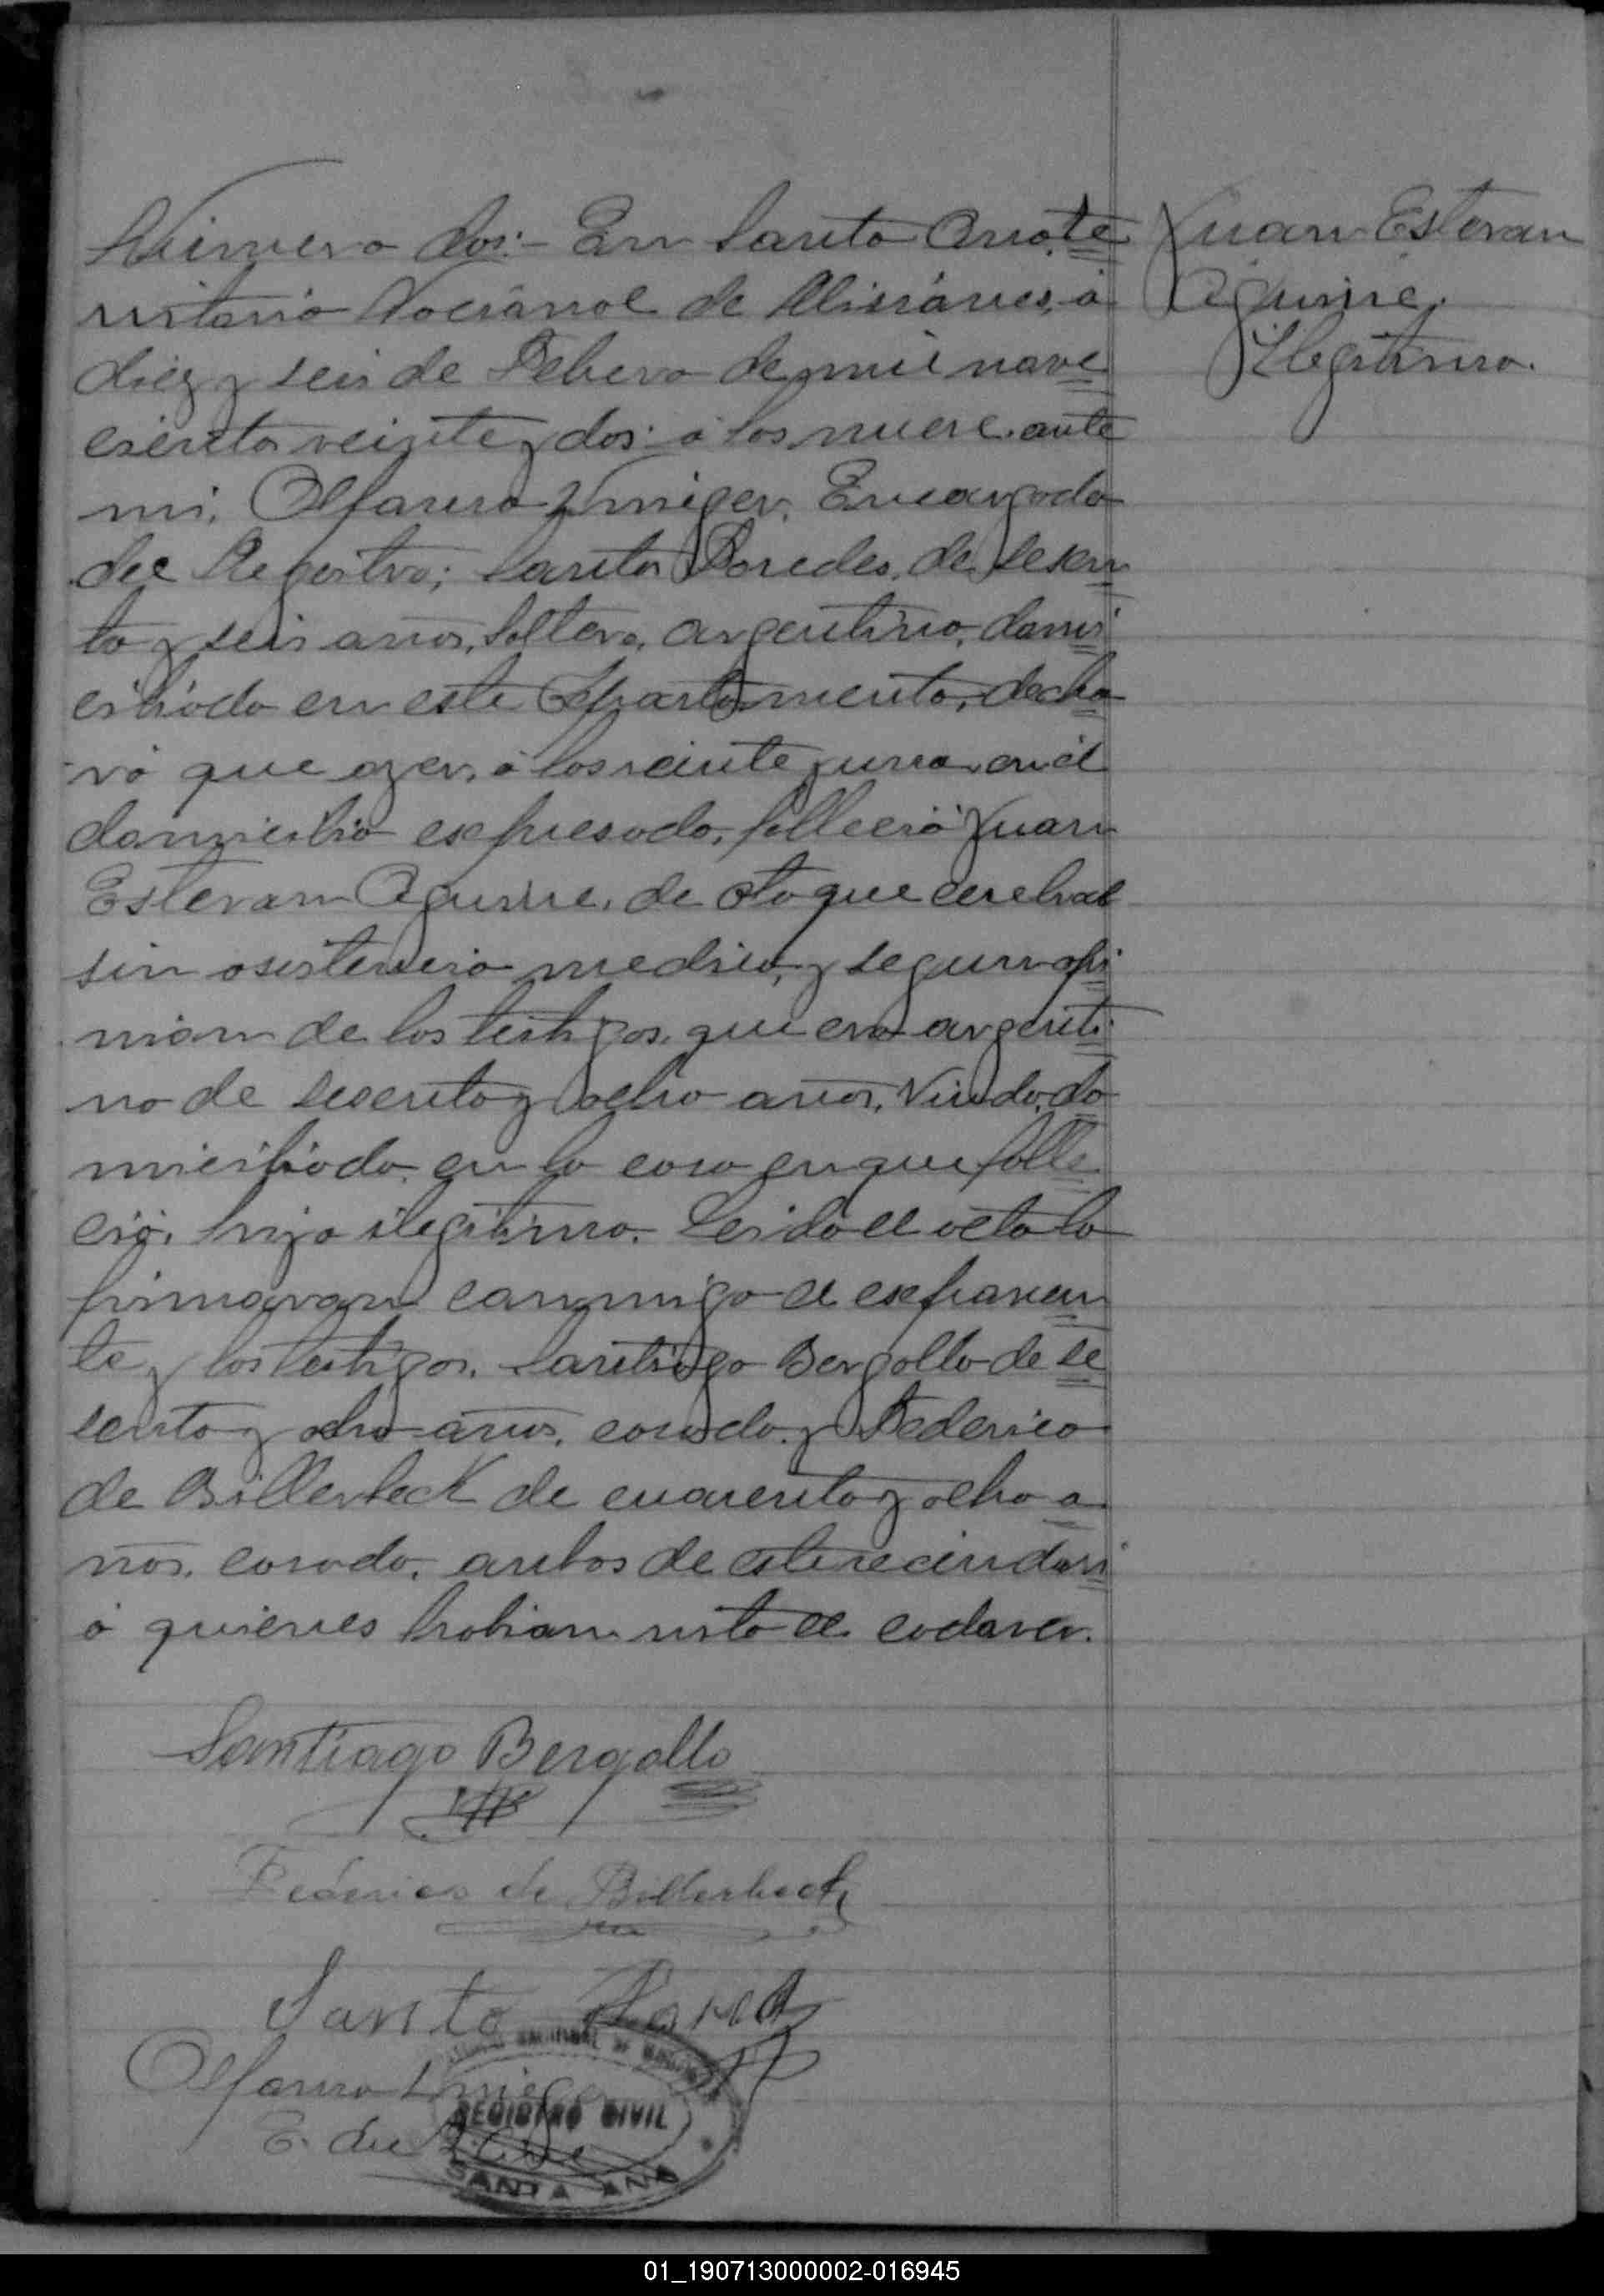 Número dos:- En Santa Ana, te
rritorio Nacional de Misiones, á
diez y seis de Febrero de mil nove
cientos veinte y dos á las nueve ante
mi, Alfaro Encargado
del Registro; Santos Paredes, de sesen
ta y seis años, soltero, argentino, domi
ciliado en este Departamento, decla
ró que ayer, á las veinte y una en el
domicilio expresado, falleció Juan
Estevan Aguirre, de ataque cerebral
sin asistencia medica, y segun opi
nion de los testigos, que era argenti
no de sesenta y ocho años, Viudo, do
miciliado, en la casa en que falle
ció, hijo ilegitimo. Leido el acta la
firmaron conmigo el exponen
te y los testigos, Santiago Bergallo de se
senta y ocho años, casado, y Federico
de Billerbeck de cuarenta y ocho a
ños, casado, ambos de este vecindari
o quienes habian visto el cadaver.
Santiago Bergallo
Federico de Billerbeck
Santo Pared
Alfaro
E. del
REGISTRO CIVIL
SANTA ANA
Juan Estevan
Aguirre,
Ilegitimo.
01_190713000002-016945